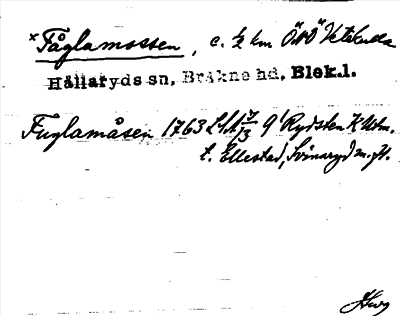 × Fåglamossen, c. ½ km ÖNÖ Vetekulla
Hällaryds sn, Bräkne hd, Blek.l.
Fuglamåsen 1763 7/3 9' Rydsten K Utm.
t. Ellestad, Svinaryd m.fl.